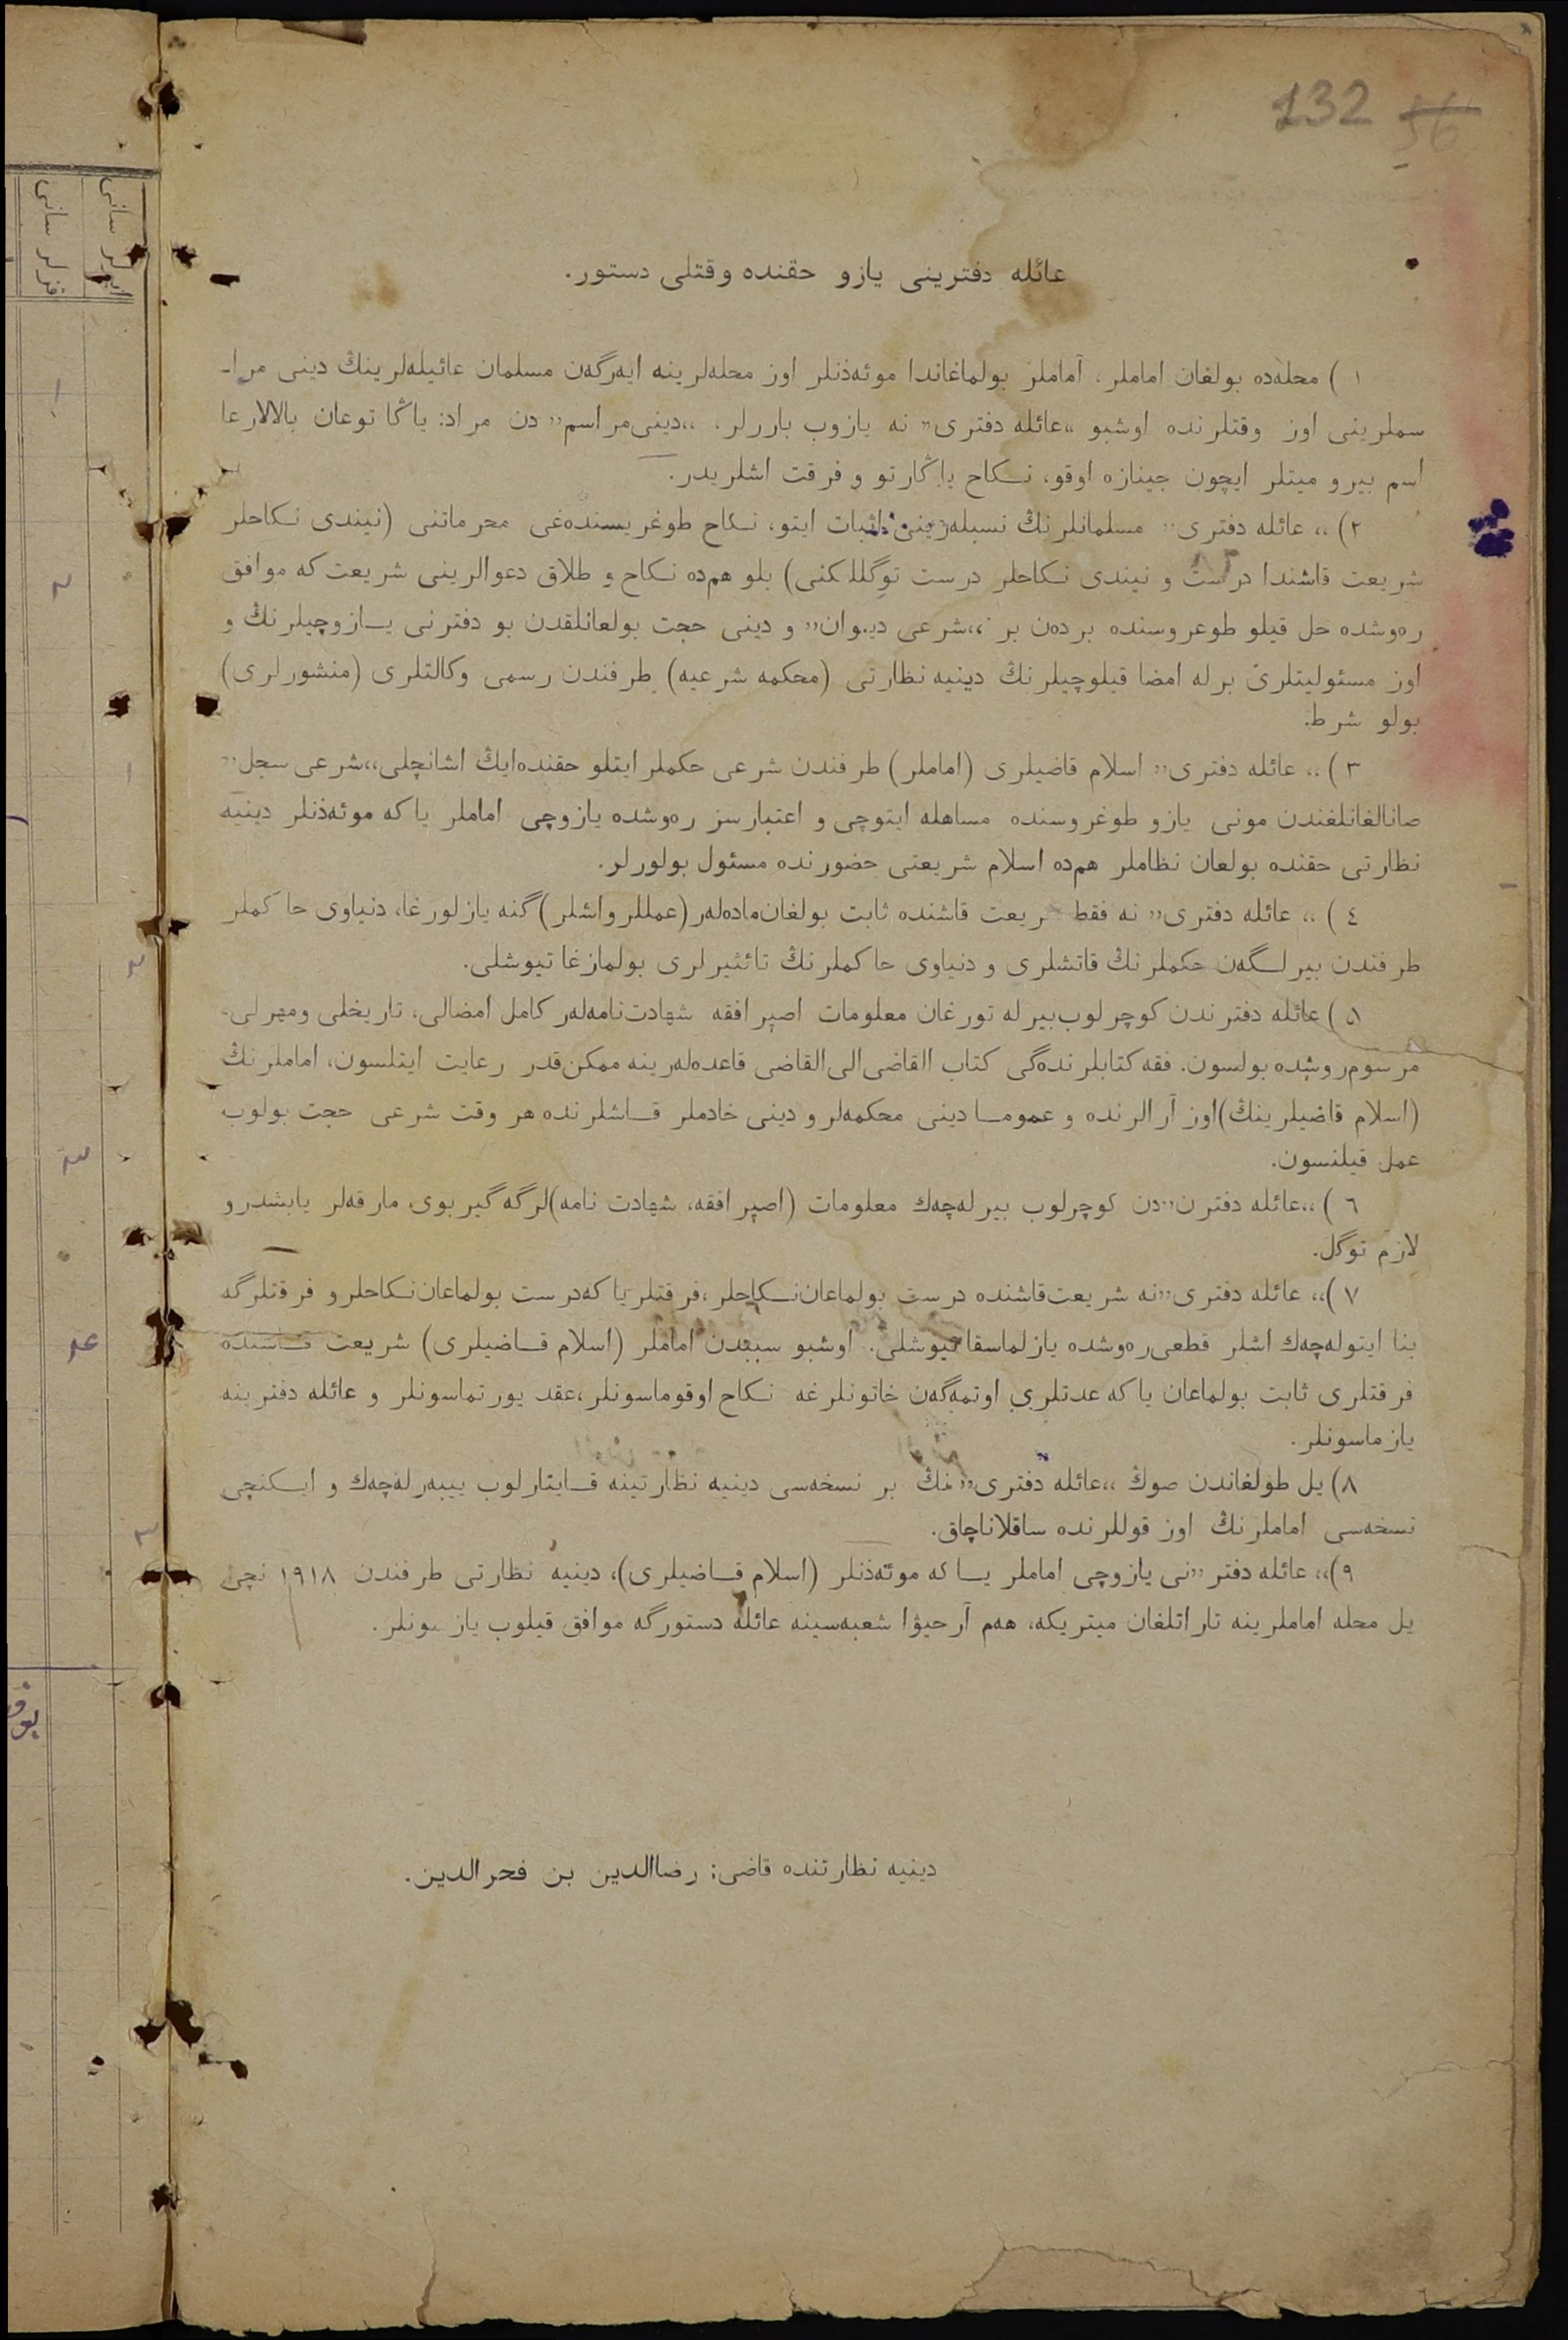 132 56
عائله دفترینی یازو حقنده وقتلی دستور.
١ ) محله‌ده بولغان اماملر، آماملر بولماغاندا موئه‌ذنلر اوز محله‌لرینه ایه‌رگه‌ن مسلمان عائیله‌لرینڭ دینی مرا-
سملرینی اوز وقتلرنده اوشبو „عائله دفتری” نه یازوب باررلر، „دینی مراسم” دن مراد: یاڭا توعان بالالارعا
اسم بیرو میتلر ایچون جینازه اوقو، نـکاح یاڭارتو و فرقت اشلریدر.
٢) „ عائله دفتری” مسلمانلرنڭ نسبله‌رینی اثبات ایتو، نـکاح طوغریسنده‌غی محرماتنی (نیندی نـکاحلر
شریعت قاشندا درست و نیندی نـکاحلر درست توگللکنی) بلو هم‌ده نـکاح و طلاق دعوالرینی شریعت که موافق
ره‌وشده حل قیلو طوعروسنده برده‌ن بر „شرعی دیوان” و دینی حجت بولعانلقدن بو دفترنی یـازوچیلرنڭ و
اوز مسئولیتلری برله امضا قیلوچیلرنڭ دینیه نظارتی (محکمه شرعیه) طرفندن رسمی وکالتلری (منشورلری)
بولو شرط.
٣ ) „ عائله دفتری” اسلام قاضیلری (اماملر) طرفندن شرعی حکملر ایتلو حقنده ایڭ اشانچلی „شرعی سجل”
صانالغانلغندن مونی یازو طوغروسنده مساهله ایتوچی و اعتبارسز ره‌وشده یازوچی اماملر یا که موئه‌ذنلر دینیه
نظارتی حقنده بولعان نظاملر هم‌ده اسلام شریعتی حضورنده مسئول بولورلر.
٤ ) „ عائله دفتری” نه فقط ریعت قاشنده ثابت بولغان ماده‌لر (عمللر واشلر) گنه یازلورغا، دنیاوی حاکملر
طرفندن بیرلـگه‌ن حکملرنڭ قاتشلری و دنیاوی حاکملرنڭ تائثیرلری بولمازغا تیوشلی.
٥ ) عائله دفترندن کوچرلوب بیرله تورغان معلومات اصپرافقه شهادت‌نامه‌لر کامل امضالی، تاریخلی ومهرلی-
مرسوم روشده بولسون. فقه کتابلرنده‌گی کتاب القاضی الی القاضی قاعده‌له‌رینه ممکن قدر رعایت ایتلسون، اماملرنڭ
(اسلام قاضیلرینڭ) اوز آرالرنده و عمومـا دینی محکمه‌لر و دینی خادملر قـاشلرنده هر وقت شرعی حجت بولوب
عمل قیلنسون.
٦ ) „عائله دفترن” دن کوچرلوب بیرله‌چه‌ك معلومات (اصپرافقه، شهادت نامه) لرگه گیربوی مارقه‌لر یابشدرو
لازم توگل.
٧ ) „ عائله دفتری” نه شریعت قاشنده درست بولماعان نـکاحلر، فرقتلر یا که درست بولماعان نـکاحلر و فرقتلرگه
بنا ایتوله‌چه‌ك اشلر قطعی ره‌وشده یازلماسقا تیوشلی. اوشبو سببدن اماملر (اسلام قـاضیلری) شریعت قـاشنده
فرقتلری ثابت بولماعان یا که عدتلری اوتمه‌گه‌ن خاتونلرغه نـکاح اوقوماسونلر، عقد یورتماسونلر و عائله دفترینه
یازماسونلر.
٨) یل طولغاندن صوڭ „عائله دفتری” نڭ بر نسخه‌سی دینیه نظارتینه قـایتارلوب ییبه‌رله‌چه‌ك و ایـکنچی
نسخه‌سی اماملرنڭ اوز قوللرنده ساقلاناچاق.
٩) „ عائله دفتر” نی یازوچی اماملر یـا که موئه‌ذنلر (اسلام قـاضیلری)، دینیه نظارتی طرفندن ١٩١٨ نچی
یل محله اماملرینه تاراتلغان میتریکه، هه‌م آرحیۋا شعبه‌سینه عائله دستورگه موافق قیلوب یازسونلر.
دینیه نظارتنده قاضی: رضاالدین بن فحرالدین.